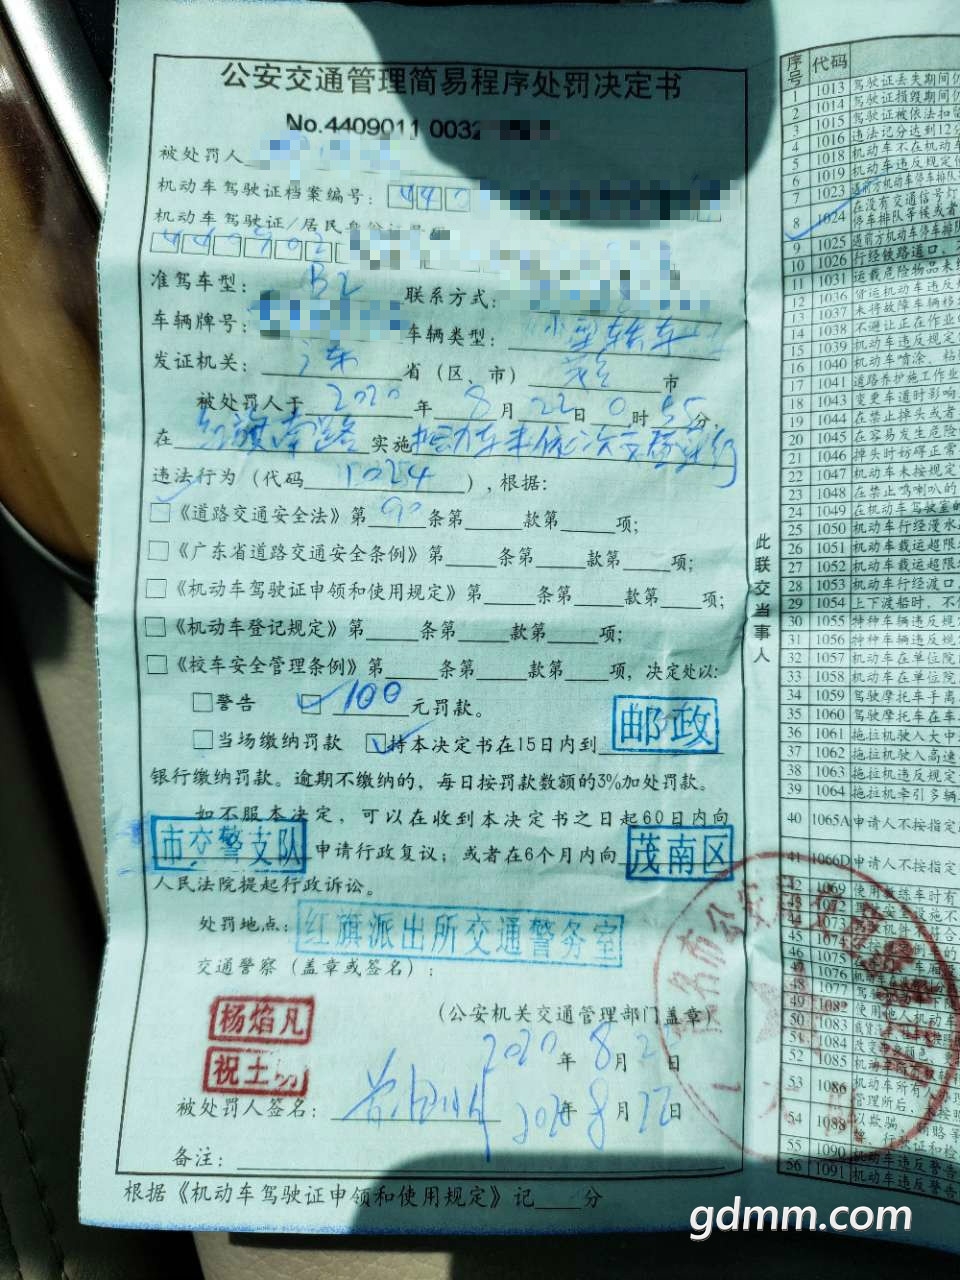 公安交通管理简易程序处罚决定书
No.4409011 0032
被处罚人
机动车驾驶证档案编号: 440
机动车驾驶证/居民身份证号码
440902
准驾车型: B2 联系方式:
车辆牌号: 车辆类型: 小型轿车
发证机关: 广东 省(区、市) 茂名 市
被处罚人于 2020 年 8 月 22 日 0 时 55 分
在 红旗南路 实施 机动车未依次交替通行
违法行为(代码 1024 ),根据:
《道路交通安全法》第 90 条第 款第 项;
《广东省道路交通安全条例》第 条第 款第 项;
《机动车驾驶证申领和使用规定》第 条第 款第 项;
《机动车登记规定》第 条第 款第 项;
《校车安全管理条例》第 条第 款第 项,决定处以:
警告 100 元罚款。
当场缴纳罚款 持本决定书在15日内到 邮政
银行缴纳罚款。逾期不缴纳的,每日按罚款数额的3%加处罚款。
如不服本决定,可以在收到本决定书之日起60日内向
市交警支队 申请行政复议;或者在6个月内向 茂南区
人民法院提起行政诉讼。
处罚地点: 红旗派出所交通警务室
交通警察(盖章或签名):
杨焰凡
祝土
(公安机关交通管理部门盖章)
2020 年 8 月 2 日
被处罚人签名: 2020 年 8 月 22 日
备注:
根据《机动车驾驶证申领和使用规定》记 分
此联交当事人
序号 代码
1 1013 驾驶证丢失期间仍
2 1014 驾驶证损毁期间仍
3 1015 驾驶证被依法扣留
4 1016 违法记分达到12分
5 1018 机动车不在机动车
6 1019 机动车违反规定使
7 1023 遇前方机动车停车排队
8 1024 在没有交通信号灯
停车排队等候或者
9 1025 遇前方机动车停车排队
10 1026 行经铁路道口,
11 1031 运载危险物品未
12 1036 货运机动车违反
13 1037 未将故障车辆移
14 1038 不避让正在作业的
15 1039 机动车违反规定
16 1040 机动车喷涂、粘
17 1041 道路养护施工作业
18 1043 变更车道时影响
19 1044 在禁止掉头或者
20 1045 在容易发生危险
21 1046 掉头时妨碍正常
22 1047 机动车未按规定
23 1048 在禁止鸣喇叭的
24 1049 在机动车驾驶室的
25 1050 机动车行经漫水
26 1051 机动车载运超限
27 1052 机动车载运超限
28 1053 机动车行经渡口,
29 1054 上下渡船时,不
30 1055 特种车辆违反规
31 1056 特种车辆违反规
32 1057 机动车在单位院
33 1058 机动车在单位院
34 1059 驾驶摩托车手离
35 1060 驾驶摩托车在车
36 1061 拖拉机驶入大中
37 1062 拖拉机驶入高速
38 1063 拖拉机违反规定
39 1064 拖拉机牵引多辆
40 1065A 申请人不按指定
41 1066D 申请人不按指定
42 1069 使用教练车时有
1073
45 1074
1075
1076
48 1077
49 1082 使用他人机动车
50 1083
51 1084 改变车身颜色、
52 1085 机动车所有权转
53 1086 机动车所有人办
管理所后,未按
54 1088 以欺骗、贿赂等
牌、行驶证和检
55 1090 机动车违反警告
56 1091 机动车违反警告
gdmm.com